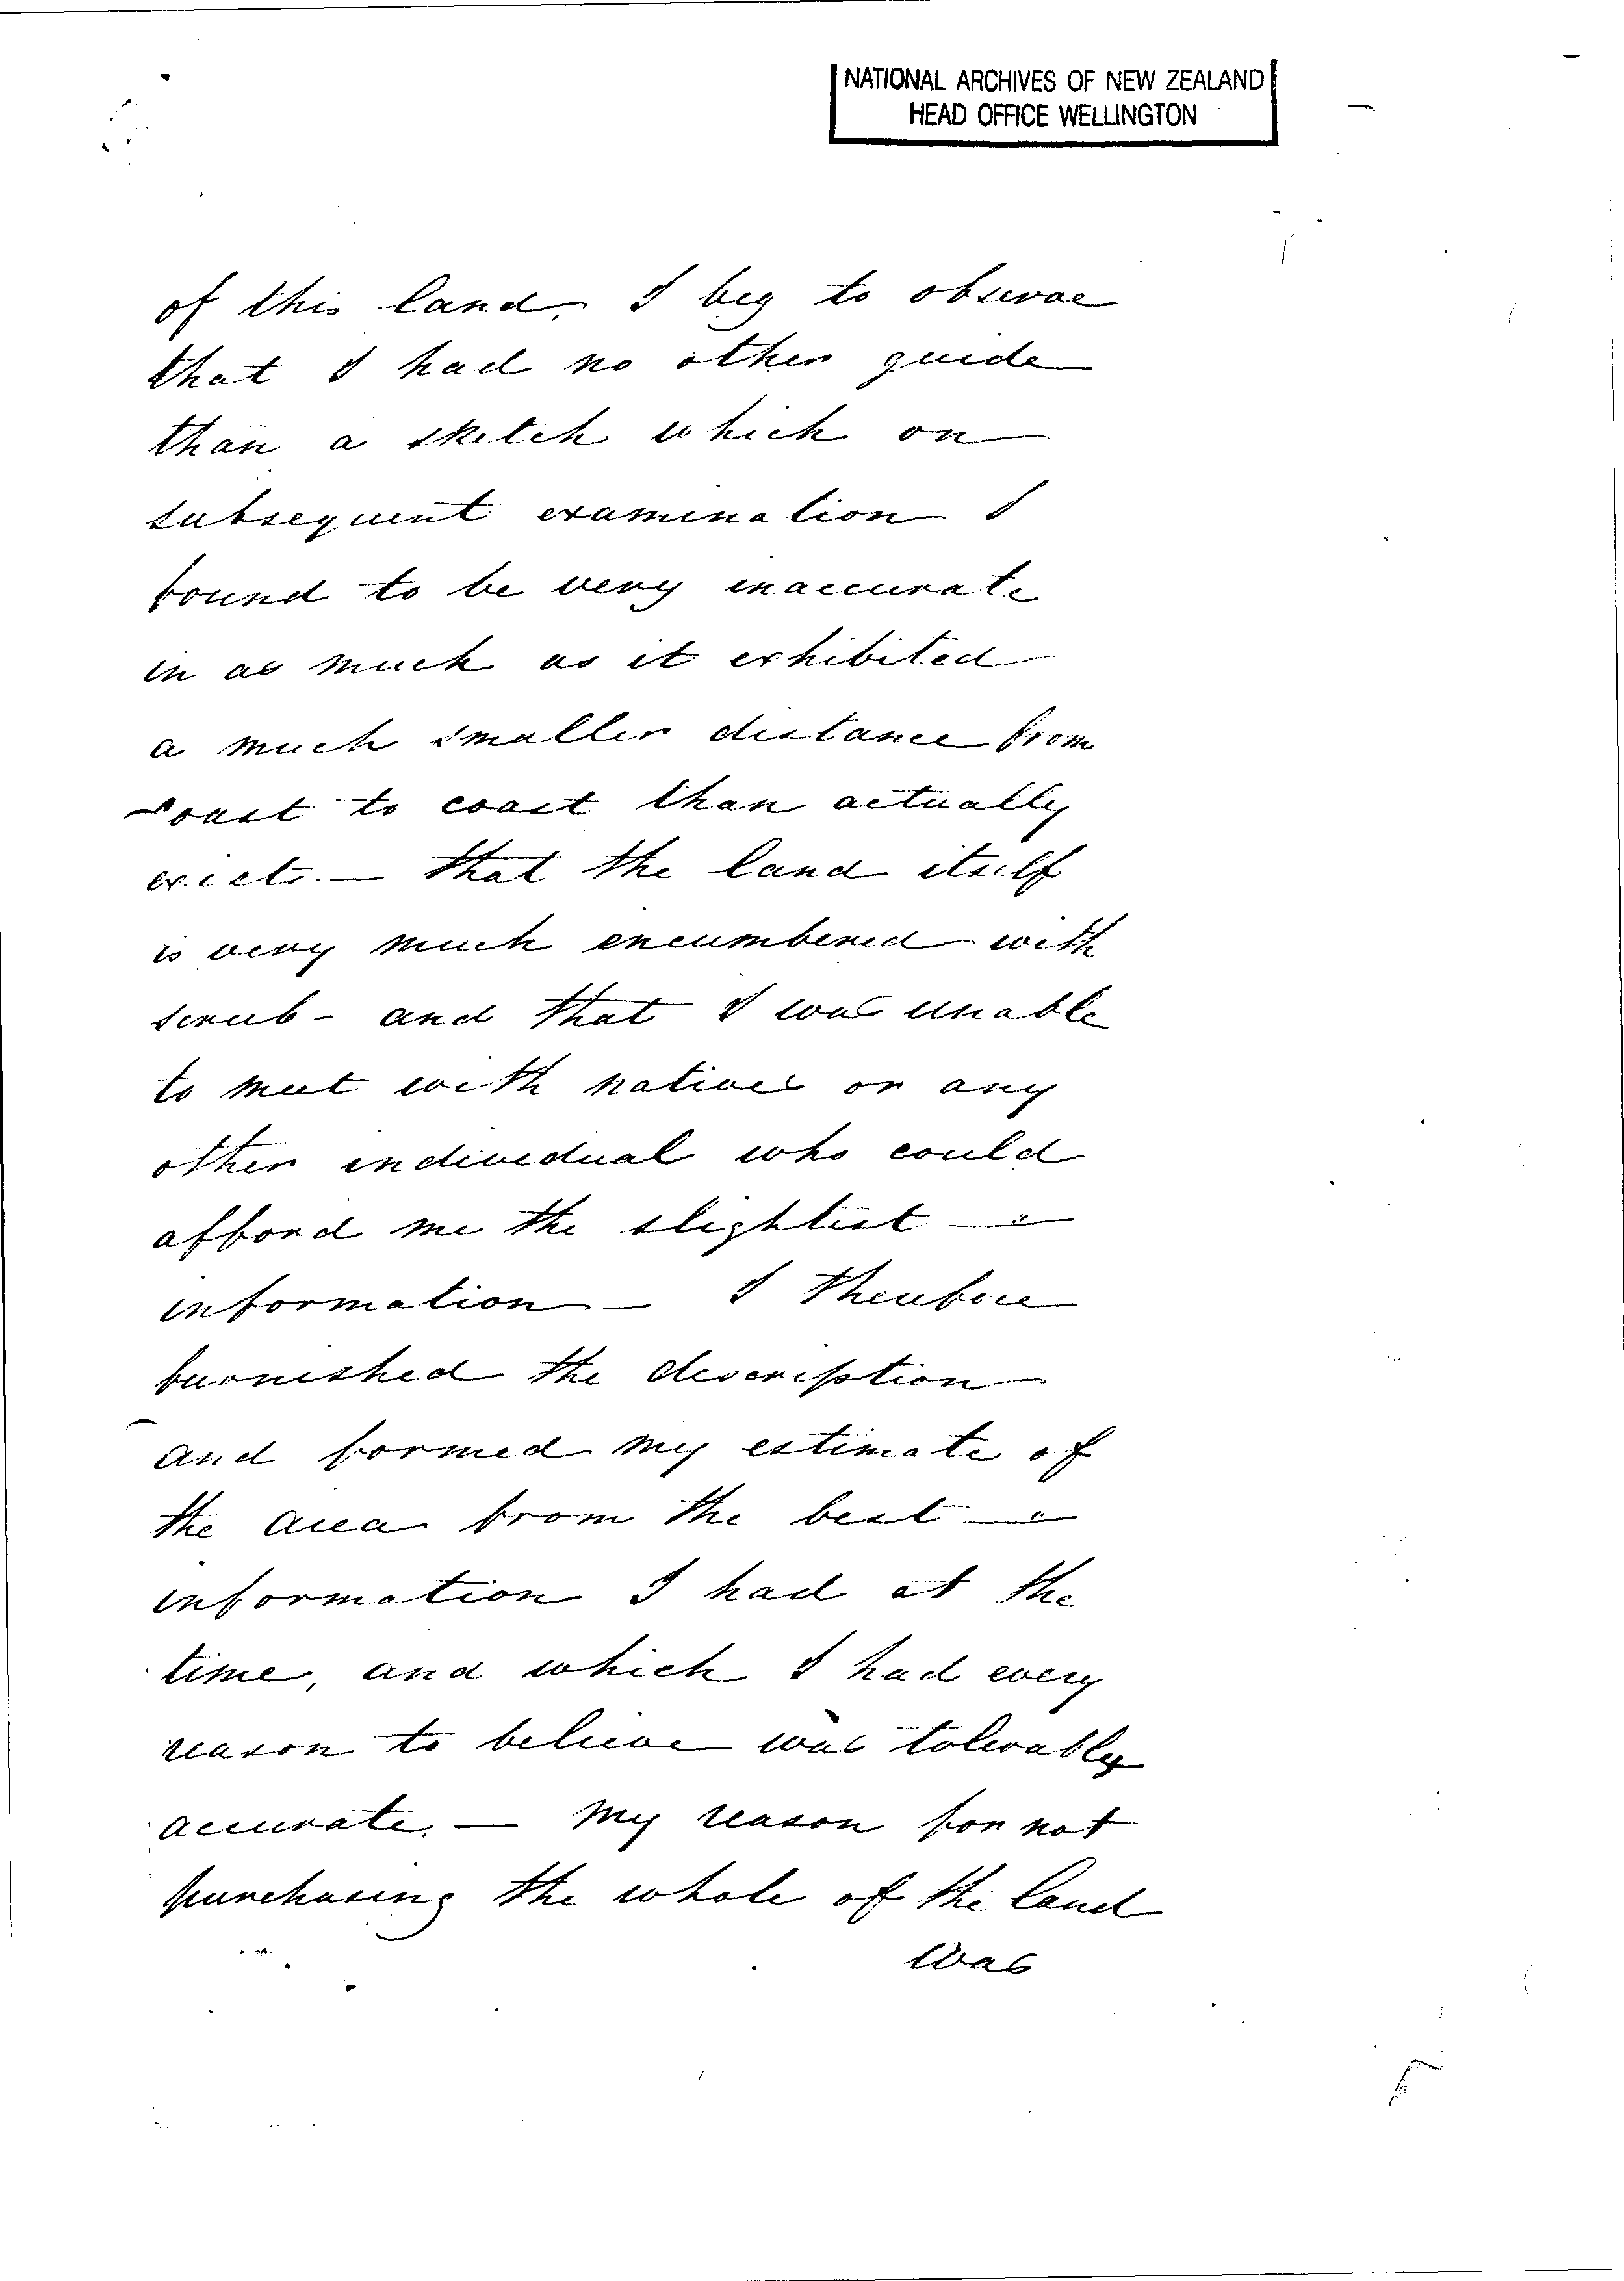 NATIONAL ARCHIVES OF NEW ZEALAND
HEAD OFFICE WELLINGTON
of this land, I beg to observe
that I had no other guide
than a sketch which on
subsequent examination I
found to be very inaccurate
in as much as it exhibited
a much smaller distance from
coast to coast than actually
exists. — that the land itself
is very much encumbered with
scrub - and that I was unable
to meet with natives or any
other individual who could
afford me the slightest —
information — I therefore
furnished the description —
and formed my estimate of
the area from the best —
information I had at the
time, and which I had every
reason to believe was tolerably
accurate. — My reason for not
purchasing the whole of the land
was